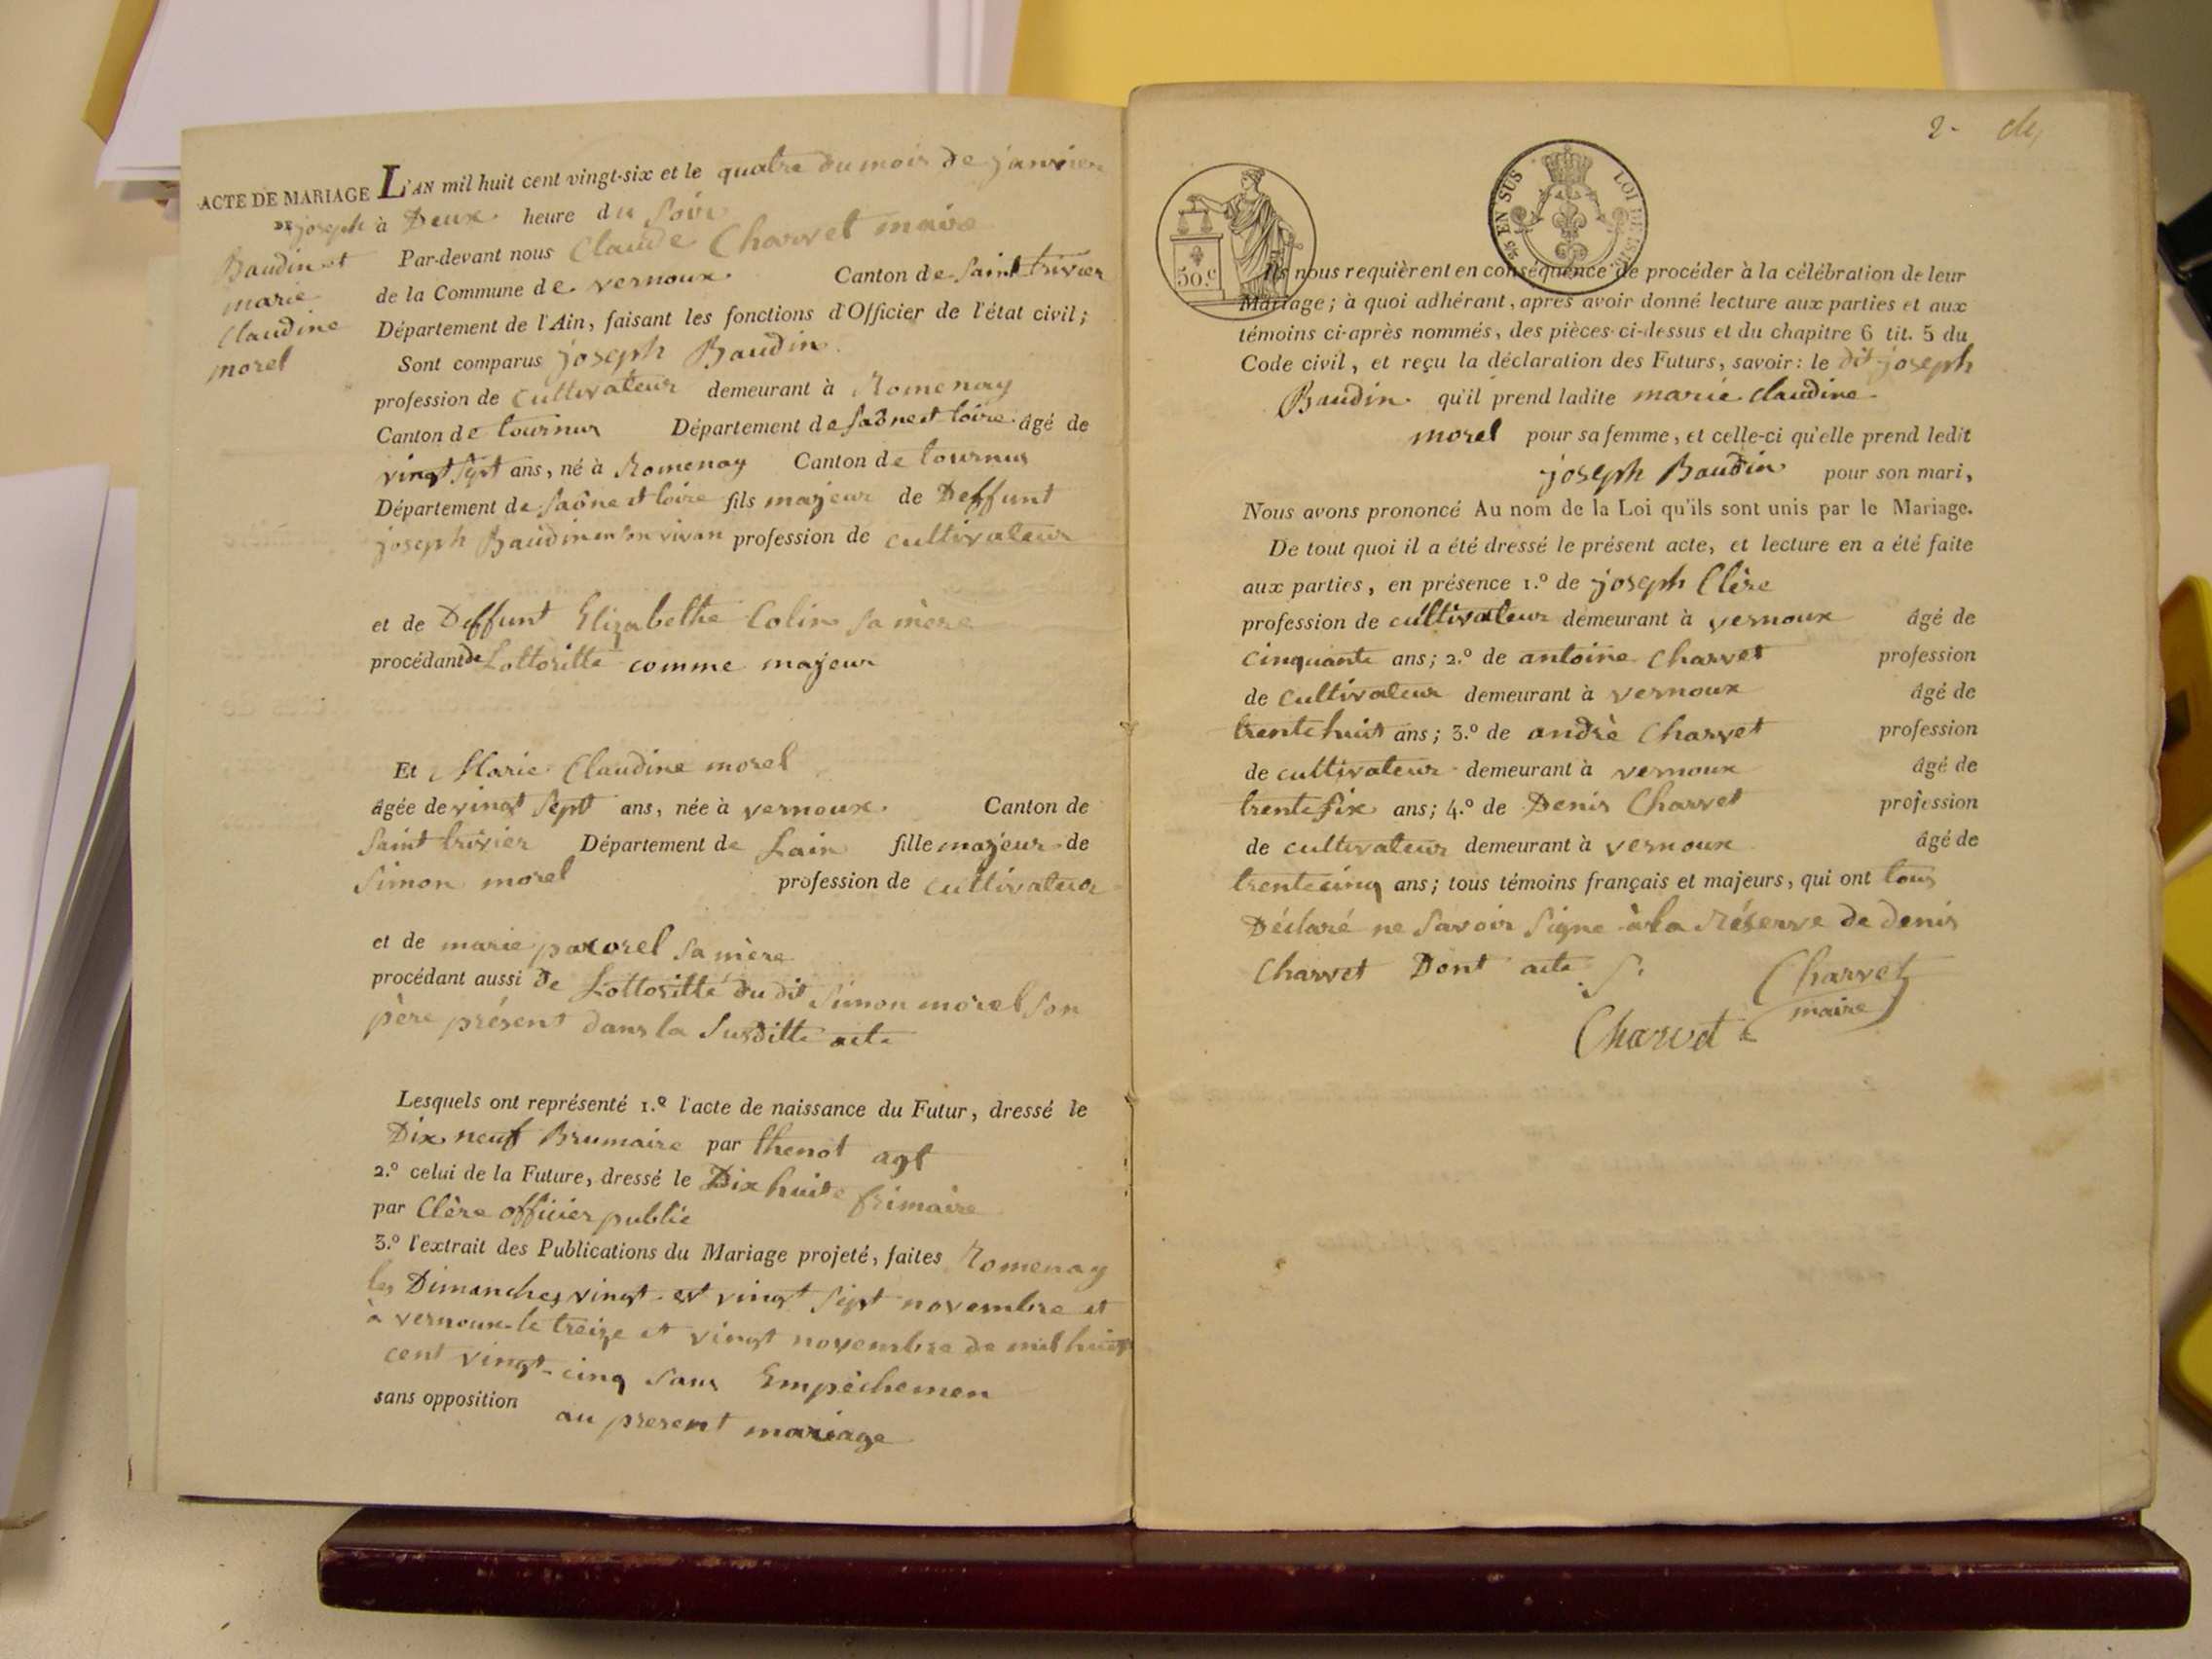 ACTE DE MARIAGE L'AN mil huit cent vingt-six et le quatre du mois de janvier
DE joseph à Deux heure du soir
Baudin et
marie
Claudine
morel
Par-devant nous Claude Charvet maire
de la Commune de vernoux Canton de Saint trivier
Département de l'Ain, faisant les fonctions d'Officier de l'état civil;
Sont comparus joseph Baudin
profession de cultivateur demeurant à Romenay
Canton de tournus Département de Saône et loire âgé de
vingt sept ans, né à Romenay Canton de tournus
Département de Saône et loire fils majeur de Deffunt
joseph Baudin en son vivan profession de cultivateur
et de Deffunt Elizabethe Colin sa mère
procédant de Lottoritté comme majeur
Et Marie Claudine morel
âgée de vingt sept ans, née à vernoux Canton de
Saint trivier Département de Lain fille majeur de
Simon morel profession de cultivateur
et de marie sa mère
procédant aussi de Lottoritté du dit Simon morel son
père présent dans la Susditte acte
Lesquels ont représenté 1.º l'acte de naissance du Futur, dressé le
Dix neuf Brumaire par thenot agt
2.º celui de la Future, dressé le Dix huite frimaire
par Clère officier public
3.º l'extrait des Publications du Mariage projeté, faites Romenay
les Dimanches vingt et vingt sept novembre et
à vernoux le treize et vingt novembre de mil huit
cent vingt-cinq sans Empêchemen
sans opposition au present mariage
2-
50.c
EN SUS LOI DE
Ils nous requièrent en conséquence de procéder à la célébration de leur
Mariage; à quoi adhérant, après avoir donné lecture aux parties et aux
témoins ci-après nommés, des pièces ci-dessus et du chapitre 6 tit. 5 du
Code civil, et reçu la déclaration des Futurs, savoir: le dit joseph
Baudin qu'il prend ladite marie claudine
morel pour sa femme, et celle-ci qu'elle prend ledit
joseph Baudin pour son mari,
Nous avons prononcé Au nom de la Loi qu'ils sont unis par le Mariage.
De tout quoi il a été dressé le présent acte, et lecture en a été faite
aux parties, en présence 1.º de joseph Clère
profession de cultivateur demeurant à vernoux âgé de
cinquante ans; 2.º de antoine Charvet profession
de cultivateur demeurant à vernoux âgé de
trente huit ans; 3.º de andrè Charvet profession
de cultivateur demeurant à vernoux âgé de
trente six ans; 4.º de Denis Charvet profession
de cultivateur demeurant à vernoux âgé de
trente cinq ans; tous témoins français et majeurs, qui ont tous
Déclaré ne savoir signe à la Réserve de denis
Charvet Dont acte
Charvet
maire
Charvet